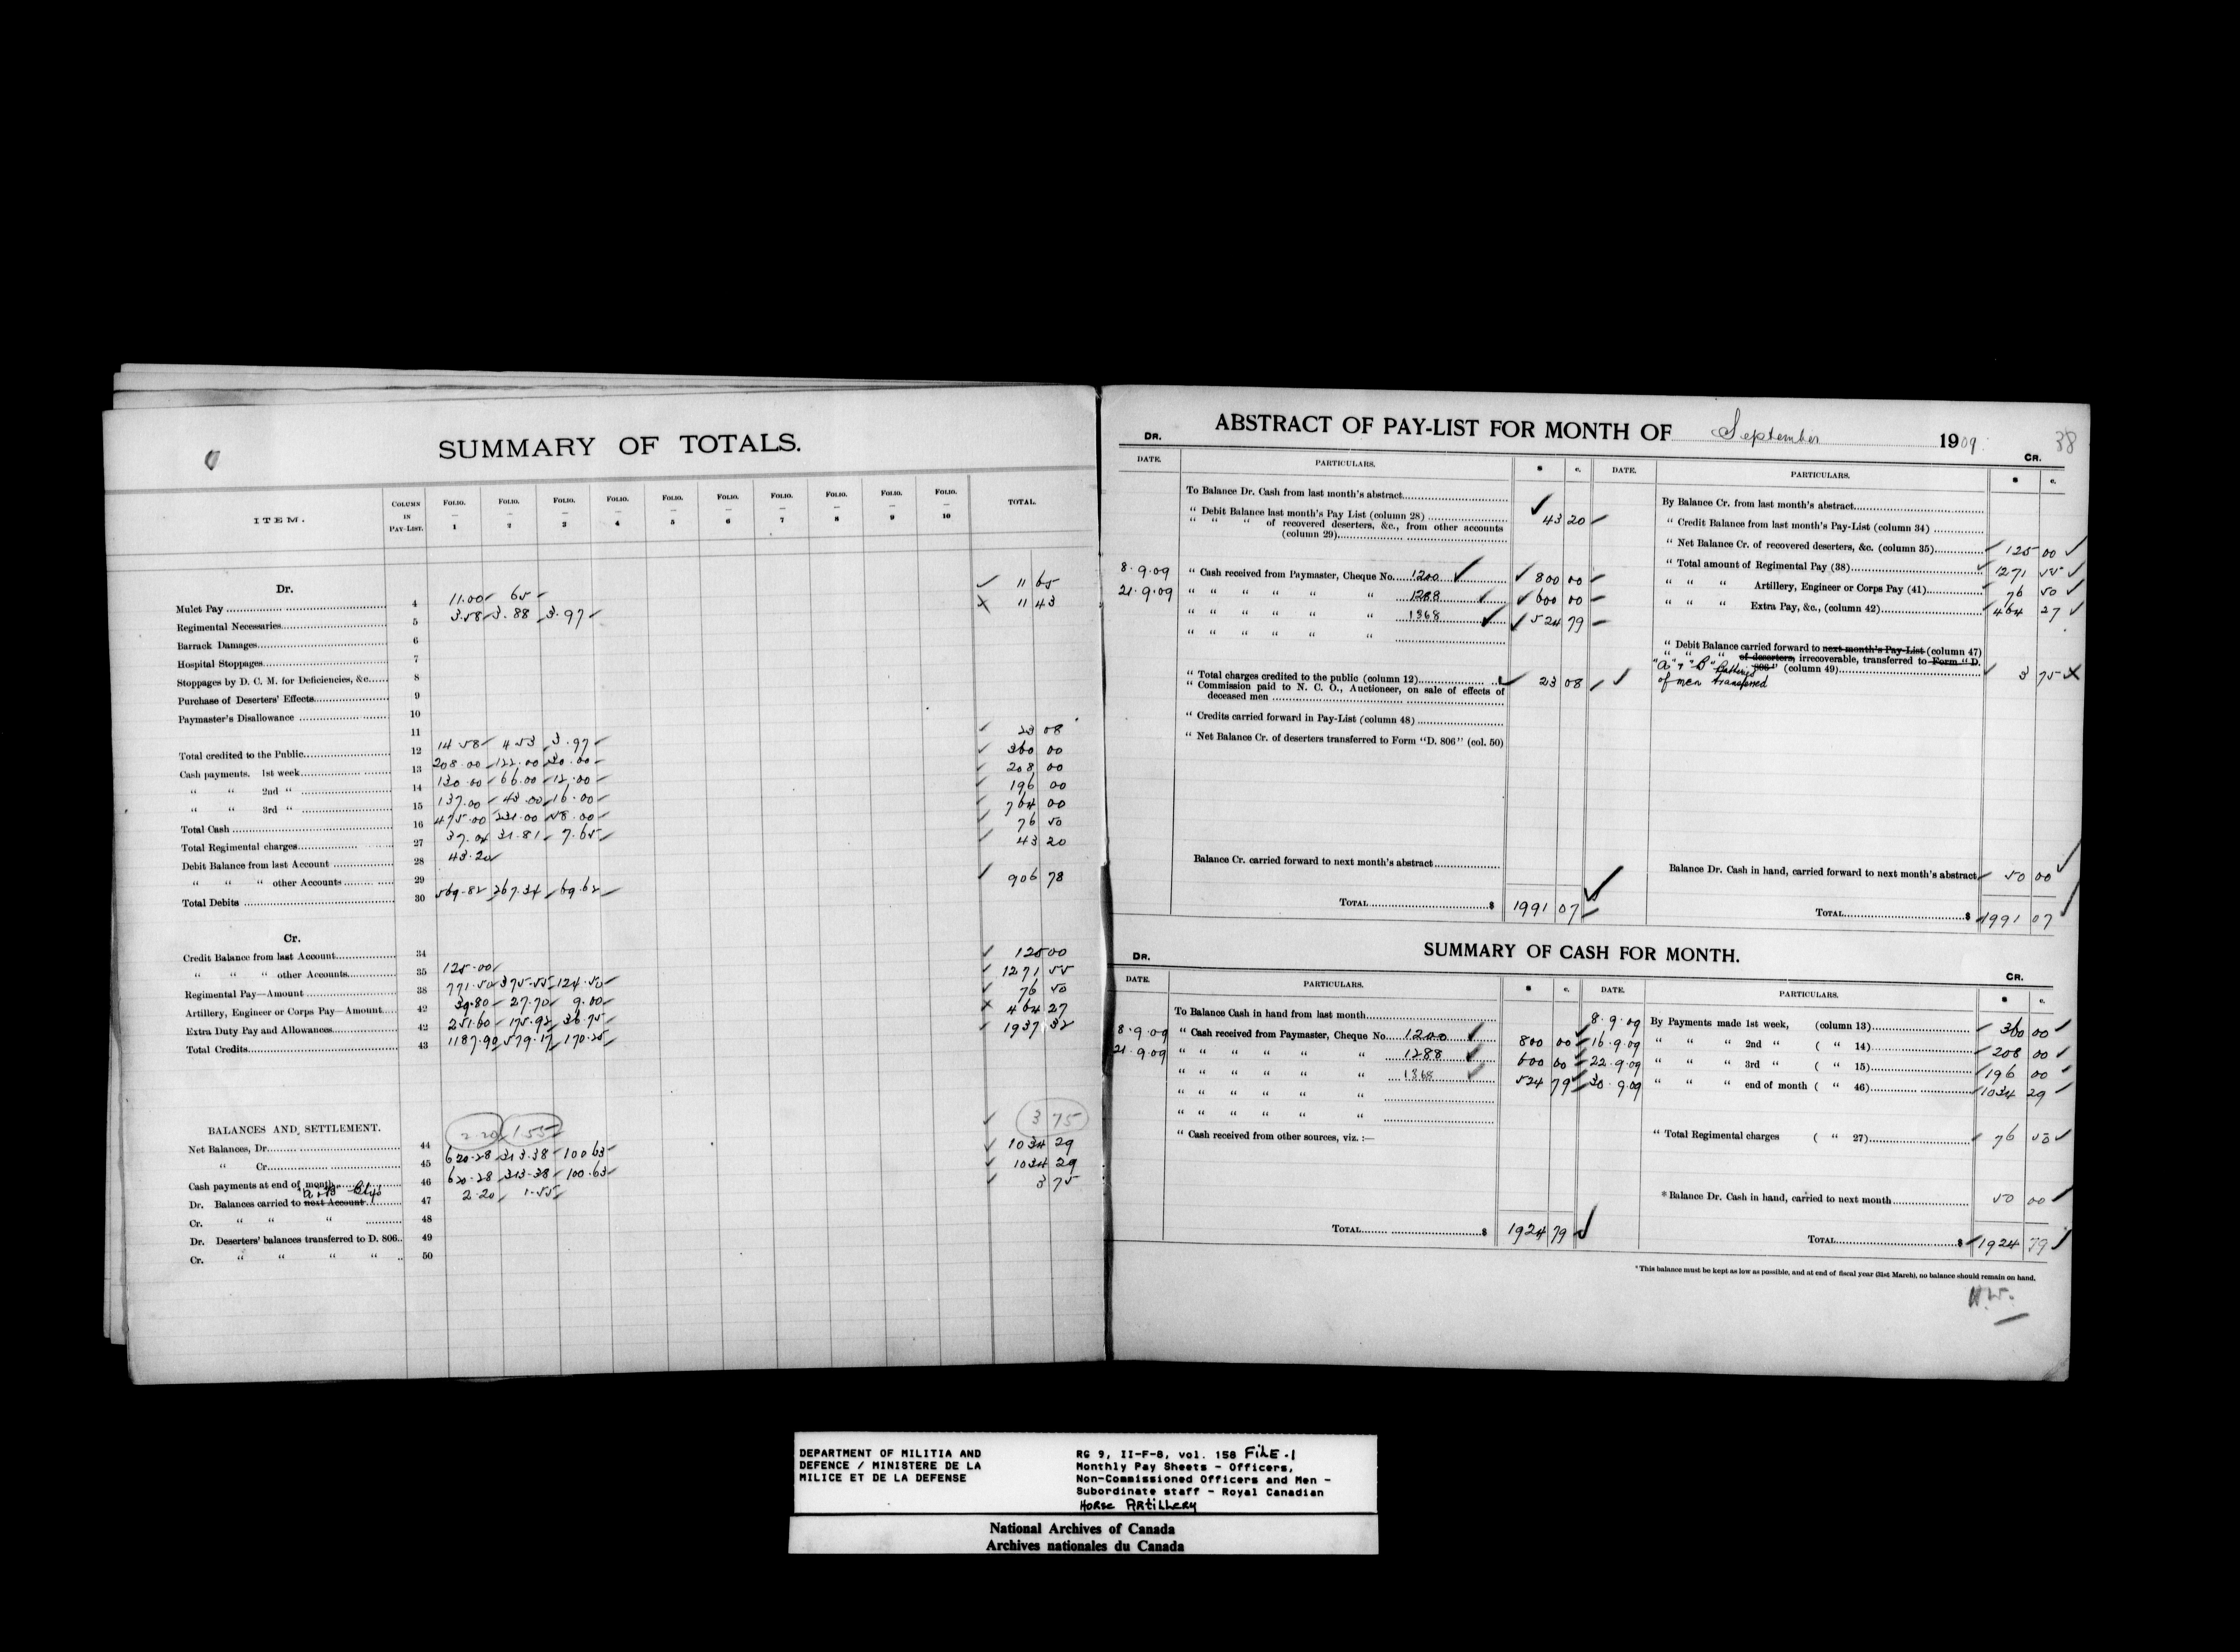 SUMMARY OF TOTALS.
ITEM. COLUMN IN PAY-LIST. FOLIO. — 1 FOLIO. — 2 FOLIO. — 3 FOLIO. — 4 FOLIO. — 5 FOLIO. — 6 FOLIO. — 7 FOLIO. — 8 FOLIO. — 9 FOLIO. — 10 TOTAL.
Dr.
Mulct Pay 4 11.00 65 11 65
Regimental Necessaries 5 3.58 3.88 3.97 11 43
Barrack Damages 6
Hospital Stoppages 7
Stoppages by D. C. M. for Deficiencies, &c. 8
Purchase of Deserters' Effects 9
Paymaster's Disallowance 10
11
Total credited to the Public 12 14 58 4 53 3.97 23 08
Cash payments. 1st week 13 208.00 122.00 30.00 360 00
" " 2nd " 14 130.00 66.00 12.00 208 00
" " 3rd " 15 137.00 43.00 16.00 196 00
Total Cash 16 475.00 231.00 58.00 764 00
Total Regimental charges 27 37.04 31.81 7.65 76 50
Debit Balance from last Account 28 43.20 43 20
" " " other Accounts 29
Total Debits 30 569.82 267.34 69.62 906 78
Cr.
Credit Balance from last Account 34
" " " other Accounts 35 125.00 125 00
Regimental Pay—Amount 38 771.50 375.55 124.50 1271 55
Artillery, Engineer or Corps Pay—Amount 42 39.80 27.70 9.00 76 50
Extra Duty Pay and Allowances 42 251.60 175.92 36.75 464 27
Total Credits 43 1187.90 579.17 170.25 1937 32
BALANCES AND SETTLEMENT.
Net Balances, Dr. 44 2.20 1.55 3 75
" Cr. 45 620.28 313.38 100 63 1034 29
Cash payments at end of month 46 620.28 313.38 100.63 1034 29
"A" & "B" Btys
Dr. Balances carried to next Account 47 2.20 1.55 3 75
Cr. " " " 48
Dr. Deserters' balances transferred to D. 806 49
Cr. " " " " 50
38
ABSTRACT OF PAY-LIST FOR MONTH OF September 1909
DR. CR.
DATE. PARTICULARS. $ c. DATE. PARTICULARS. $ c.
To Balance Dr. Cash from last month's abstract
" Debit Balance last month's Pay List (column 28) 43 20
" " " of recovered deserters, &c., from other accounts
(column 29)
8.9.09 " Cash received from Paymaster, Cheque No. 1200 800 00
21.9.09 " " " " " " 1288 600 00
" " " " " " 1368 524 79
" " " " " "
" Total charges credited to the public (column 12) 23 08
" Commission paid to N. C. O., Auctioneer, on sale of effects of
deceased men
" Credits carried forward in Pay-List (column 48)
" Net Balance Cr. of deserters transferred to Form "D. 806" (col. 50)
Balance Cr. carried forward to next month's abstract
TOTAL $ 1991 07
By Balance Cr. from last month's abstract
" Credit Balance from last month's Pay-List (column 34)
" Net Balance Cr. of recovered deserters, &c. (column 35) 125 00
" Total amount of Regimental Pay (38) 1271 55
" " " Artillery, Engineer or Corps Pay (41) 76 50
" " " Extra Pay, &c., (column 42) 464 27
" Debit Balance carried forward to next month's Pay-List (column 47)
" " " of deserters, irrecoverable, transferred to Form "D.
"A" & "B" Batteries 806" (column 49) 3 75
of men transferred
Balance Dr. Cash in hand, carried forward to next month's abstract 50 00
TOTAL $ 1991 07
SUMMARY OF CASH FOR MONTH.
DR. CR.
DATE. PARTICULARS. $ c. DATE. PARTICULARS. $ c.
To Balance Cash in hand from last month
8.9.09 " Cash received from Paymaster, Cheque No. 1200 800 00
21.9.09 " " " " " " 1288 600 00
" " " " " " 1368 524 79
" " " " " "
" " " " " "
" Cash received from other sources, viz. :—
TOTAL $ 1924 79
8.9.09 By Payments made 1st week, (column 13) 360 00
16.9.09 " " " 2nd " ( " 14) 208 00
22.9.09 " " " 3rd " ( " 15) 196 00
30.9.09 " " " end of month ( " 46) 1034 29
" Total Regimental charges ( " 27) 76 50
*Balance Dr. Cash in hand, carried to next month 50 00
TOTAL $ 1924 79
*This balance must be kept as low as possible, and at end of fiscal year (31st March), no balance should remain on hand.
DEPARTMENT OF MILITIA AND
DEFENCE / MINISTERE DE LA
MILICE ET DE LA DEFENSE
RG 9, II-F-8, vol. 158 FILE.1
Monthly Pay Sheets - Officers,
Non-Commissioned Officers and Men -
Subordinate staff - Royal Canadian
Horse Artillery
National Archives of Canada
Archives nationales du Canada